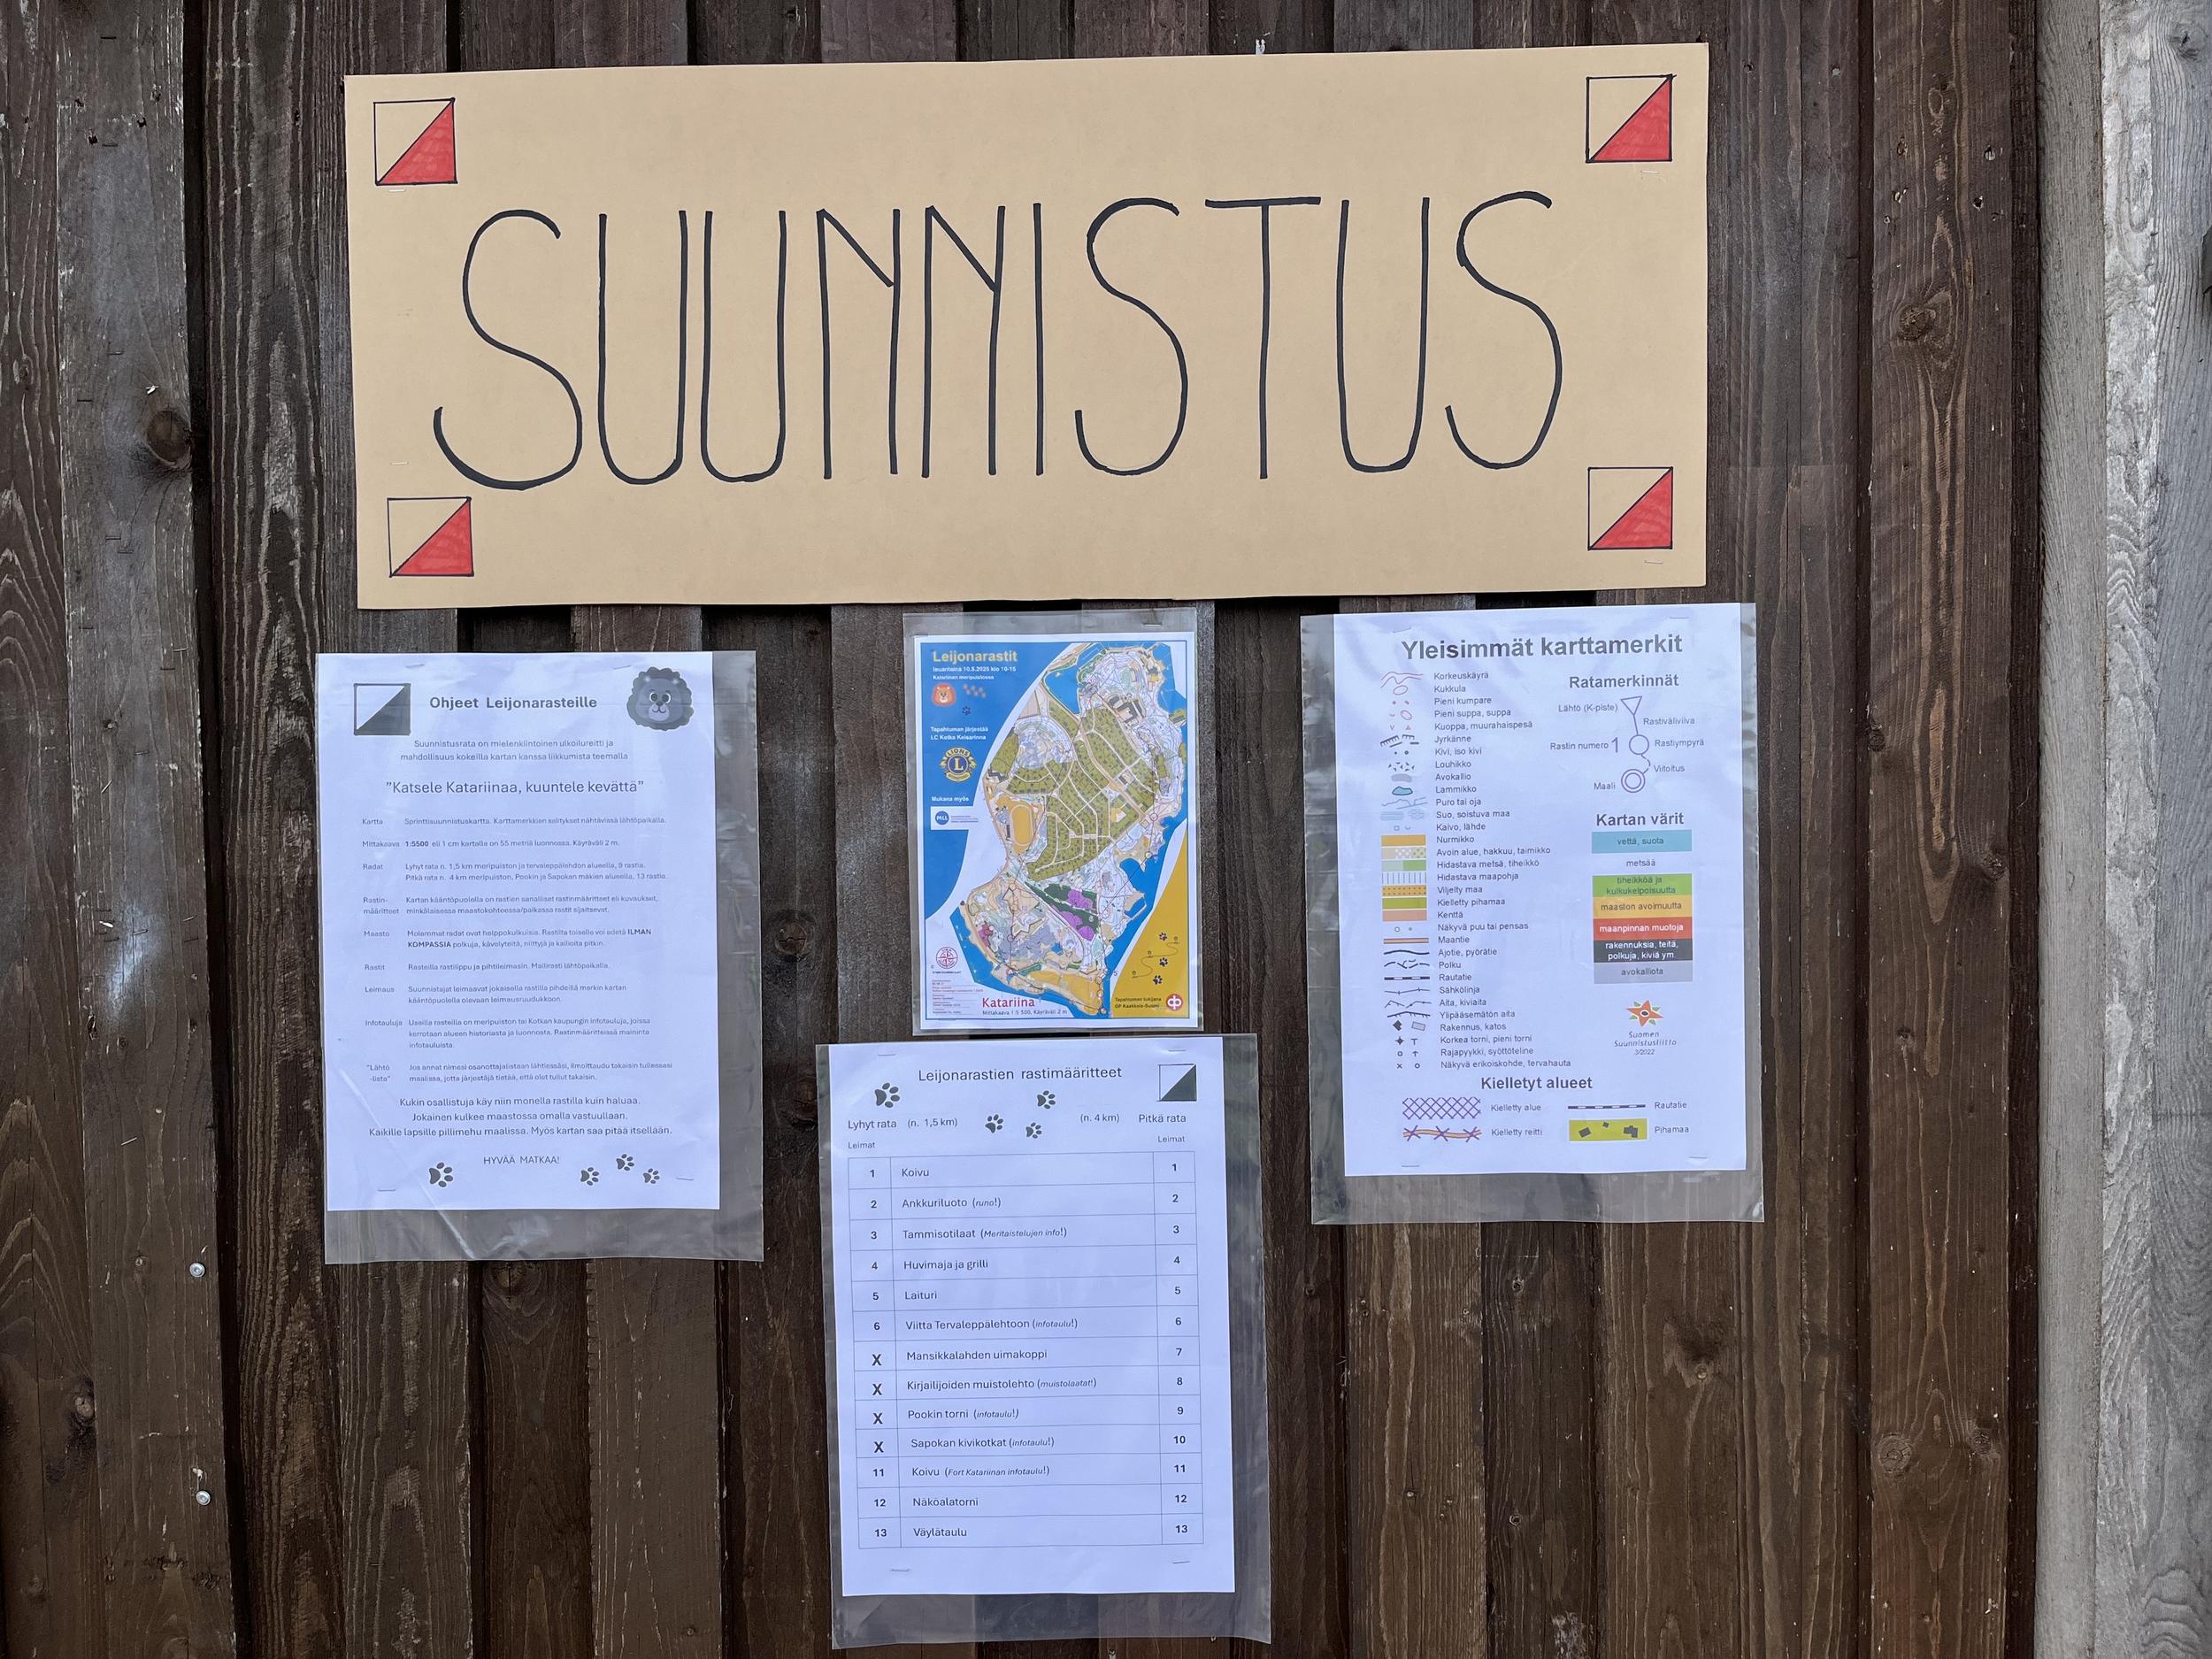 SUUNNISTUS
Ohjeet Leijonarasteille
Suunnistusrata on mielenkiintoinen ulkoilureitti ja
mahdollisuus kokeilla kartan kanssa liikkumista teemalla
"Katsele Katariinaa, kuuntele kevättä"
Kartta Sprinttisuunnistuskartta. Karttamerkkien selitykset nähtävissä lähtöpaikalla.
Mittakaava 1:5500 eli 1 cm kartalla on 55 metriä luonnossa. Käyräväli 2 m.
Radat Lyhyt rata n. 1,5 km meripuiston ja tervaleppälehdon alueella, 9 rastia.
Pitkä rata n. 4 km meripuiston, Pookin ja Sapokan mäkien alueella, 13 rastia.
Rastin- Kartan kääntöpuolella on rastien sanalliset rastinmääritteet eli kuvaukset,
määritteet minkälaisessa maastokohteessa/paikassa rastit sijaitsevat.
Maasto Molemmat radat ovat helppokulkuisia. Rastilta toiselle voi edetä ILMAN
KOMPASSIA polkuja, kävelyteitä, niittyjä ja kallioita pitkin.
Rastit Rasteilla rastilippu ja pihtileimasin. Mallirasti lähtöpaikalla.
Leimaus Suunnistajat leimaavat jokaisella rastilla pihdeillä merkin kartan
kääntöpuolella olevaan leimausruudukkoon.
Infotauluja Useilla rasteilla on meripuiston tai Kotkan kaupungin infotauluja, joissa
kerrotaan alueen historiasta ja luonnosta. Rastinmääritteissä maininta
infotauluista.
"Lähtö Jos annat nimesi osanottajalistaan lähtiessäsi, ilmoittaudu takaisin tullessasi
-lista" maalissa, jotta järjestäjä tietää, että olet tullut takaisin.
Kukin osallistuja käy niin monella rastilla kuin haluaa.
Jokainen kulkee maastossa omalla vastuullaan.
Kaikille lapsille pillimehu maalissa. Myös kartan saa pitää itsellään.
HYVÄÄ MATKAA!
Leijonarastit
lauantaina 10.5.2025 klo 10-15
Katariinan meripuistossa
Tapahtuman järjestää
LC Kotka Keisarinna
LIONS
L
Mukana myös
MLL
Katariina
Mittakaava 1:5 500, Käyräväli 2 m
Tapahtuman tukijana
OP Kaakkois-Suomi
Leijonarastien rastimääritteet
Lyhyt rata (n. 1,5 km) (n. 4 km) Pitkä rata
Leimat Leimat
1 Koivu 1
2 Ankkuriluoto (runo!) 2
3 Tammisotilaat (Meritaistelujen info!) 3
4 Huvimaja ja grilli 4
5 Laituri 5
6 Viitta Tervaleppälehtoon (infotaulu!) 6
X Mansikkalahden uimakoppi 7
X Kirjailijoiden muistolehto (muistolaatat!) 8
X Pookin torni (infotaulu!) 9
X Sapokan kivikotkat (infotaulu!) 10
11 Koivu (Fort Katariinan infotaulu!) 11
12 Näköalatorni 12
13 Väylätaulu 13
Yleisimmät karttamerkit
Korkeuskäyrä
Kukkula
Pieni kumpare
Pieni suppa, suppa
Kuoppa, muurahaispesä
Jyrkänne
Kivi, iso kivi
Louhikko
Avokallio
Lammikko
Puro tai oja
Suo, soistuva maa
Kaivo, lähde
Nurmikko
Avoin alue, hakkuu, taimikko
Hidastava metsä, tiheikkö
Hidastava maapohja
Viljelty maa
Kielletty pihamaa
Kenttä
Näkyvä puu tai pensas
Maantie
Ajotie, pyörätie
Polku
Rautatie
Sähkölinja
Aita, kiviaita
Ylipääsemätön aita
Rakennus, katos
Korkea torni, pieni torni
Rajapyykki, syöttöteline
Näkyvä erikoiskohde, tervahauta
Ratamerkinnät
Lähtö (K-piste)
Rastiväliviiva
Rastin numero 1 Rastiympyrä
Viitoitus
Maali
Kartan värit
vettä, suota
metsää
tiheikköä ja
kulkukelpoisuutta
maaston avoimuutta
maanpinnan muotoja
rakennuksia, teitä,
polkuja, kiviä ym.
avokalliota
Suomen
Suunnistusliitto
3/2022
Kielletyt alueet
Kielletty alue Rautatie
Kielletty reitti Pihamaa